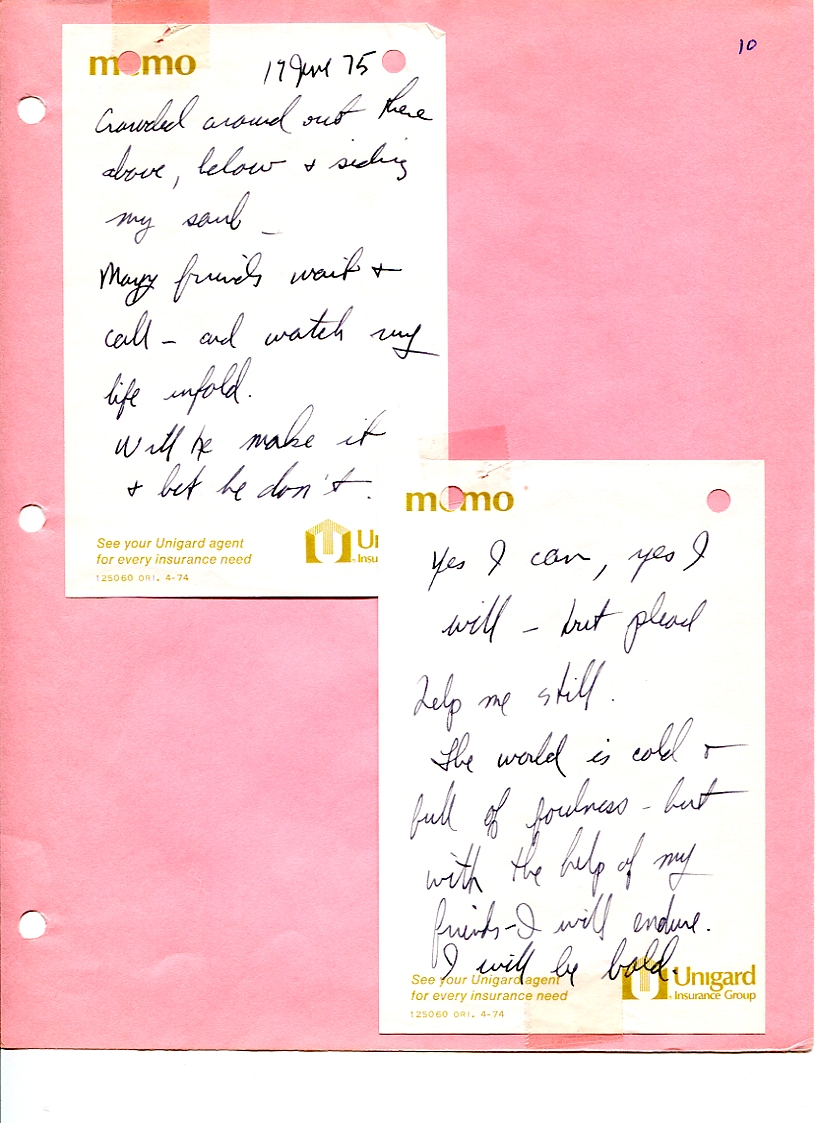 10
memo
17 June 75
Crowded around out there
above, below + siding
my soul –
Many friends wait +
call – and watch my
life unfold.
Will he make it
+ bet he don't.
See your Unigard agent
for every insurance need
125060 ORI. 4-74
Uni
Insu
memo
Yes I can, yes I
will – but plead
help me still.
The world is cold +
full of foulness – but
with the help of my
friends – I will endure.
I will be bold.
See your Unigard agent
for every insurance need
125060 ORI. 4-74
Unigard
Insurance Group